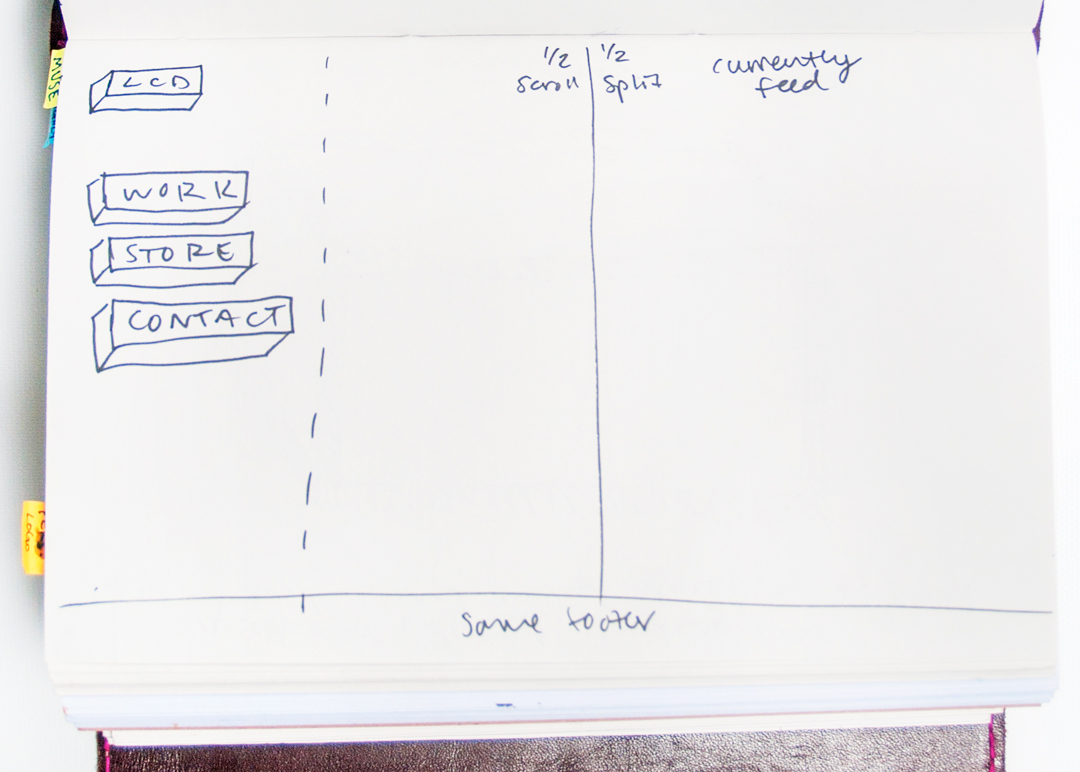 LCD
WORK
STORE
CONTACT
1/2
scroll
1/2
split
currently
feed
same footer
MUSE